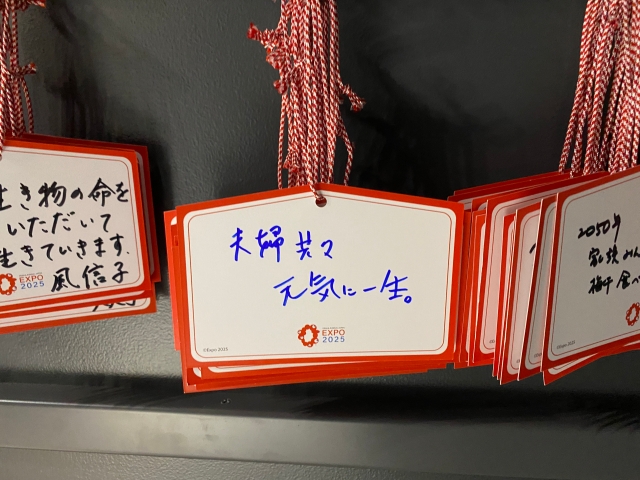 生き物の命を
いただいて
生きていきます.
風信子
EXPO
2025
夫婦共々
元気に一生。
EXPO
2025
©Expo 2025
2050年
家族みん
梅干食べ
©Expo 2025